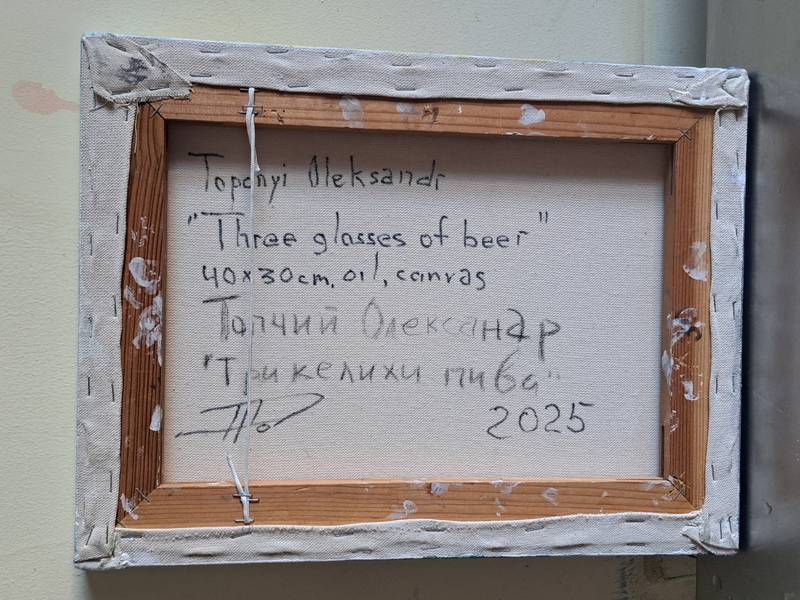 Topchyi Oleksandr
"Three glasses of beer"
40x30cm, oil, canvas
Топчий Олександр
"Три келихи пива"
2025